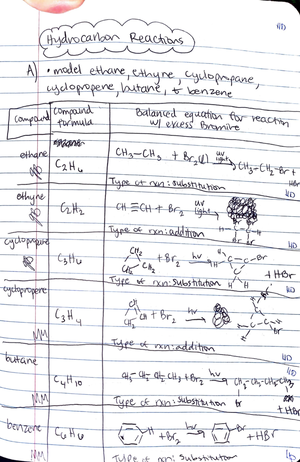 HD
Hydrocarbon Reactions
A) • model ethane, ethyne, cyclopropane,
cyclopropene, butane, & benzene
Compound
Compound formula
Balanced equation for reaction w/ excess Bromine
ethane
C2H6
CH3-CH3 + Br2(l) uv light → CH3-CH2-Br + HBr
Type of rxn: substitution
HD
ethyne
C2H2
CH≡CH + Br2 uv light →
Type of rxn: addition
HD
cyclopropane
C3H6
CH2 CH2 + Br2 hv → + HBr
Type of rxn: substitution
HD
cyclopropene
C3H4
+ Br2 hv →
MM
Type of rxn: addition
HD
butane
C4H10
CH3-CH2-CH2CH3 + Br2 hv → CH3-CH2-CH2
Br + HBr
MM
Type of rxn: substitution
benzene
C6H6
H + Br2 hv → Br + HBr
MM
Type of rxn: substitution
HD